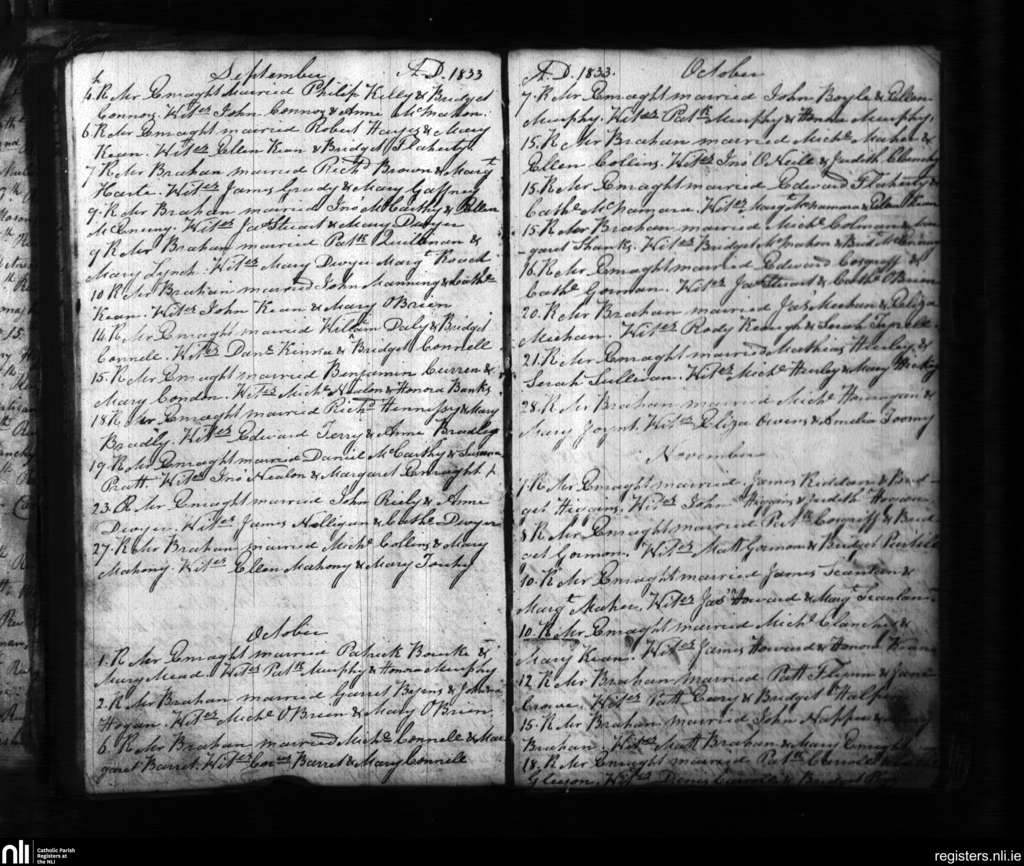 September A.D. 1833
4. R Mr Enraght Married Philip Kelly & Bridget
Connor. Wit.es John Connor & Anne McMahon.
6. R Mr Enraght married Robert Hayes & Mary
Kean. Wit.es Ellen Kean & Bridget Flaherty
7. R Mr Brahan married Richd Brown & Margt
Harte. Wit.es James Grady & Mary Gaffney
9. R Mr Brahan married Jno McCarthy & Ellen
McEniry. Wit.es Jas Stuart & Mary Dwyer
9. R Mr Brahan married Patk Quillman &
Mary Lynch. Wit.es Mary Dwyer Margt Roach
10. R Mr Brahan married John Manning & Cathe
Kean. Wit.es John Kean & Mary OBrien
14. R Mr Enraght married William Daly & Bridget
Connell. Wit.es Danl Kinna & Bridget Connell
15. R Mr Enraght married Benjamin Curren &
Mary Condon. Wit.es Michl Neulon & Honora Banks
18. R Mr Enraght married Richd Hennessy & Mary
Bradly. Wit.es Edward Terry & Anne Bradley
19. R Mr Enraght married Daniel McCarthy & Susanna
Pratt. Wit.es Jno Nealon & Margaret Enraght
23. R Mr Enraght married John Riely & Anne
Dwyer. Wit.es James Nelligan & Cathe Dwyer
27. R Mr Brahan married Michl Collins & Mary
Mahony. Wit.es Ellen Mahony & Mary Touhy
October
1. R Mr Enraght married Patrick Bourke &
Mary Mead. Wit.es Patk Murphy & Honora Murphy
2. R Mr Brahan married Garret Byens & Johanna
Hogan. Wit.es Michl OBrien & Mary OBrien
6. R Mr Brahan married Michl Connell & Mar
garet Barret. Wit.es Barret & Mary Connell
A.D. 1833. October
7. R Mr Enraght married John Boyle & Ellen
Murphy. Wit.es Patk Murphy & Honora Murphy.
15. R Mr Brahan married Michl Mahon &
Ellen Collins. Wit.es Jno O Neill & Judith Clanchy
15. R Mr Enraght married Edward Flaherty &
Cathe McNamara. Wit.es Margt McNamara & Ellen Kean
15. R Mr Brahan married Michl Colman & Mar
garet Shanks. Wit.es Bridget McMahon & Bridt McEniry
16. R Mr Enraght married Edward Cosgriff &
Cathe Gorman. Wit.es Jas Stuart & Cathe OBrien
20. R Mr Brahan married Jas Meehan & Eliza
Meehan. Wit.es Rody Keough & Sarah Tyrrell
21. R Mr Enraght married Mathias Hurley &
Sarah Sullivan. Wit.es Michl Hurley & Mary Hickey
28. R Mr Brahan married Michl Hourigan &
Mary Joynt. Wit.es Eliza Owens & Amelia Toomy
November
7. R Mr Enraght married James Riddan & Brid
get Higgins. Wit.es John Higgins & Judith
8. R Mr Enraght married Patk Cosgriff & Brid
get Gorman. Wit.es Matt Gorman & Bridget Purtell
10. R Mr Enraght married James Scanlan &
Margt Maher. Wit.es Jas Howard & Margt Scanlan
10. R Mr Enraght married Michl Clanchy &
Mary Kean. Wit.es James Howard & Honora Keane
12. R Mr Brahan married Patt Flynn & Jane
Crowe. Wit.es Patt Gary & Bridget Walsh
15. R Mr Brahan married John Napper & Mary
Brahan. Wit.es Matt Brahan & Mary Enraght
18. R Mr Enraght married Patk Connell &
Gleeson. Wit.es Denis Connell & Bridget
nli Catholic Parish
Registers at
the NLI
registers.nli.ie